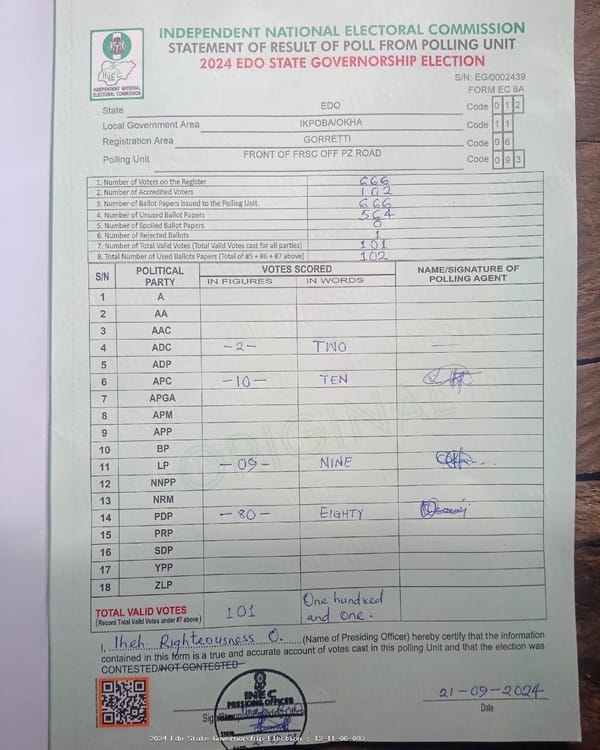 INDEPENDENT NATIONAL ELECTORAL COMMISSION
STATEMENT OF RESULT OF POLL FROM POLLING UNIT
2024 EDO STATE GOVERNORSHIP ELECTION
INEC
INDEPENDENT NATIONAL
ELECTORAL COMMISSION
S/N: EG/0002439
FORM EC 8A
State EDO Code 0 1 2
Local Government Area IKPOBA/OKHA Code 1 1
Registration Area GORRETTI Code 0 6
Polling Unit FRONT OF FRSC OFF PZ ROAD Code 0 9 3
1. Number of Voters on the Register 666
2. Number of Accredited Voters 102
3. Number of Ballot Papers Issued to the Polling Unit 666
4. Number of Unused Ballot Papers 564
5. Number of Spoiled Ballot Papers 0
6. Number of Rejected Ballots 1
7. Number of Total Valid Votes (Total Valid Votes cast for all parties) 101
8. Total Number of Used Ballots Papers (Total of #5 + #6 + #7 above) 102
S/N POLITICAL PARTY VOTES SCORED NAME/SIGNATURE OF POLLING AGENT
IN FIGURES IN WORDS
1 A
2 AA
3 AAC
4 ADC -2- TWO —
5 ADP
6 APC -10- TEN
7 APGA
8 APM
9 APP
10 BP
11 LP -09- NINE
12 NNPP
13 NRM
14 PDP -80- EIGHTY
15 PRP
16 SDP
17 YPP
18 ZLP
ORIGINAL
TOTAL VALID VOTES 101 One hundred and one.
(Record Total Valid Votes under #7 above)
I, Iheh Righteousness O. (Name of Presiding Officer) hereby certify that the information
contained in this form is a true and accurate account of votes cast in this polling Unit and that the election was
CONTESTED/NOT CONTESTED
INEC
PRESIDING OFFICER
21-09-2024
Date
2024 Edo State Governorship Election : 12-11-06-093